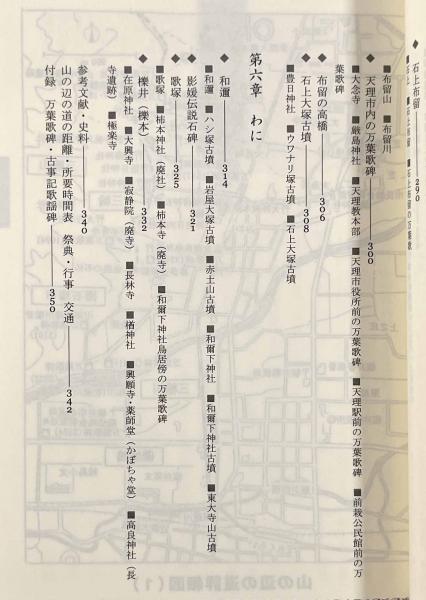 ◆ 石上布留――290
■布留山 ■布留川
◆ 天理市内の万葉歌碑――300
■大念寺 ■厳島神社 ■天理教本部 ■天理市役所前の万葉歌碑 ■天理駅前の万葉歌碑 ■前栽公民館前の万
葉歌碑
◆ 布留の高橋――306
◆ 石上大塚古墳――308
■豊日神社 ■ウワナリ塚古墳 ■石上大塚古墳
第六章 わに
◆ 和邇――314
■和邇 ■ハシ塚古墳 ■岩屋大塚古墳 ■赤土山古墳 ■和爾下神社 ■和爾下神社古墳 ■東大寺山古墳
◆ 影媛伝説石碑――321
◆ 歌塚――325
■歌塚 ■柿本神社(廃社) ■柿本寺(廃寺) ■和爾下神社鳥居傍の万葉歌碑
◆ 櫟井(櫟本)――332
■在原神社 ■大興寺 ■寂静院(廃寺) ■長林寺 ■楢神社 ■興願寺・薬師堂(かぼちゃ堂) ■高良神社(長
寺遺跡) ■極楽寺
参考文献・史料――340
山の辺の道の距離・所要時間表 祭典・行事 交通――342
付録 万葉歌碑・古事記歌謡碑――350